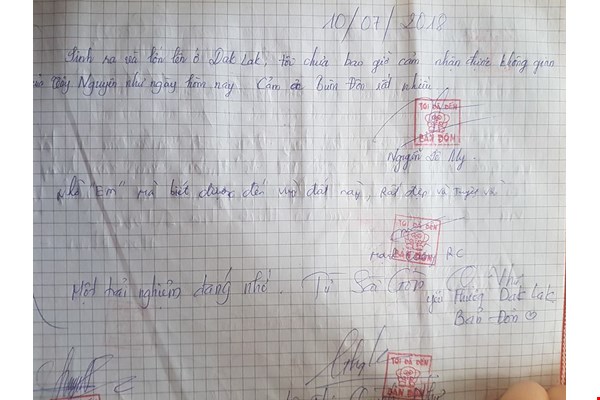 10/07/2018
Sinh ra và lớn lên ở Dak Lak, tôi chưa bao giờ cảm nhận được không gian
Tây Nguyên như ngày hôm nay. Cảm ơn Buôn Đôn rất nhiều
TÔI ĐÃ ĐẾN
BẢN ĐÔN
Nguyễn My.
Nhờ "Em" mà biết được đến vùng đất này, Rất đẹp và Tuyệt vời
BẢN ĐÔN
RC
Một trải nghiệm đáng nhớ. Từ Sài Gòn
yêu thương Dak Lak,
Bản-Đôn
TÔI ĐÃ ĐẾN
TÔI ĐÃ ĐẾN
BẢN ĐÔN